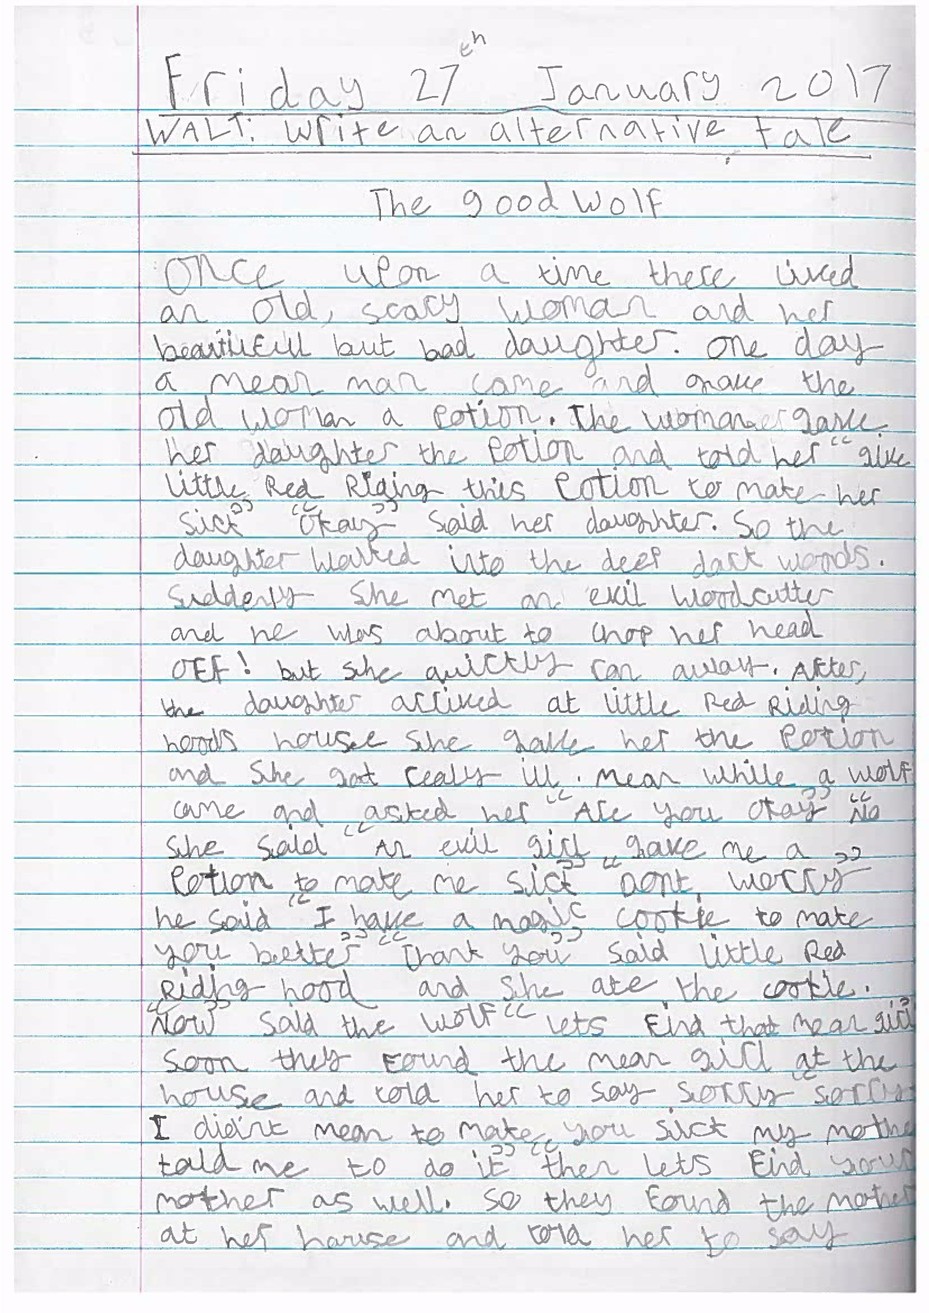 Friday 27th January 2017
WALT: write an alternative tale
The good wolf
Once upon a time there lived
an old, scary woman and her
beautifull but bad daughter. One day
a mean man came and gave the
old woman a potion. The woman gave
her daughter the potion and told her “give
little Red Riding this potion to make her
sick” “Okay” said her daughter. So the
daughter walked into the deep dark woods.
Suddenly she met an evil woodcutter
and he was about to chop her head
OFF! but she quickly ran away. After,
the daughter arrived at little Red Riding
hoods house she gave her the potion
and she got realy ill. Mean while a wolf
came and asked her “Are you okay” “No
she said “An evil girl gave me a
potion to make me sick” “Dont worry”
he said “I have a magic cookie to make
you better” “Thank you” said little Red
Riding hood and she ate the cookie.
“Now” said the wolf “lets find that mean girl”
Soon they found the mean girl at the
house and told her to say sorry “sorry
I didint mean to make you sick my mothe
told me to do it” “then lets find your
mother as well. So they found the mother
at her house and told her to say